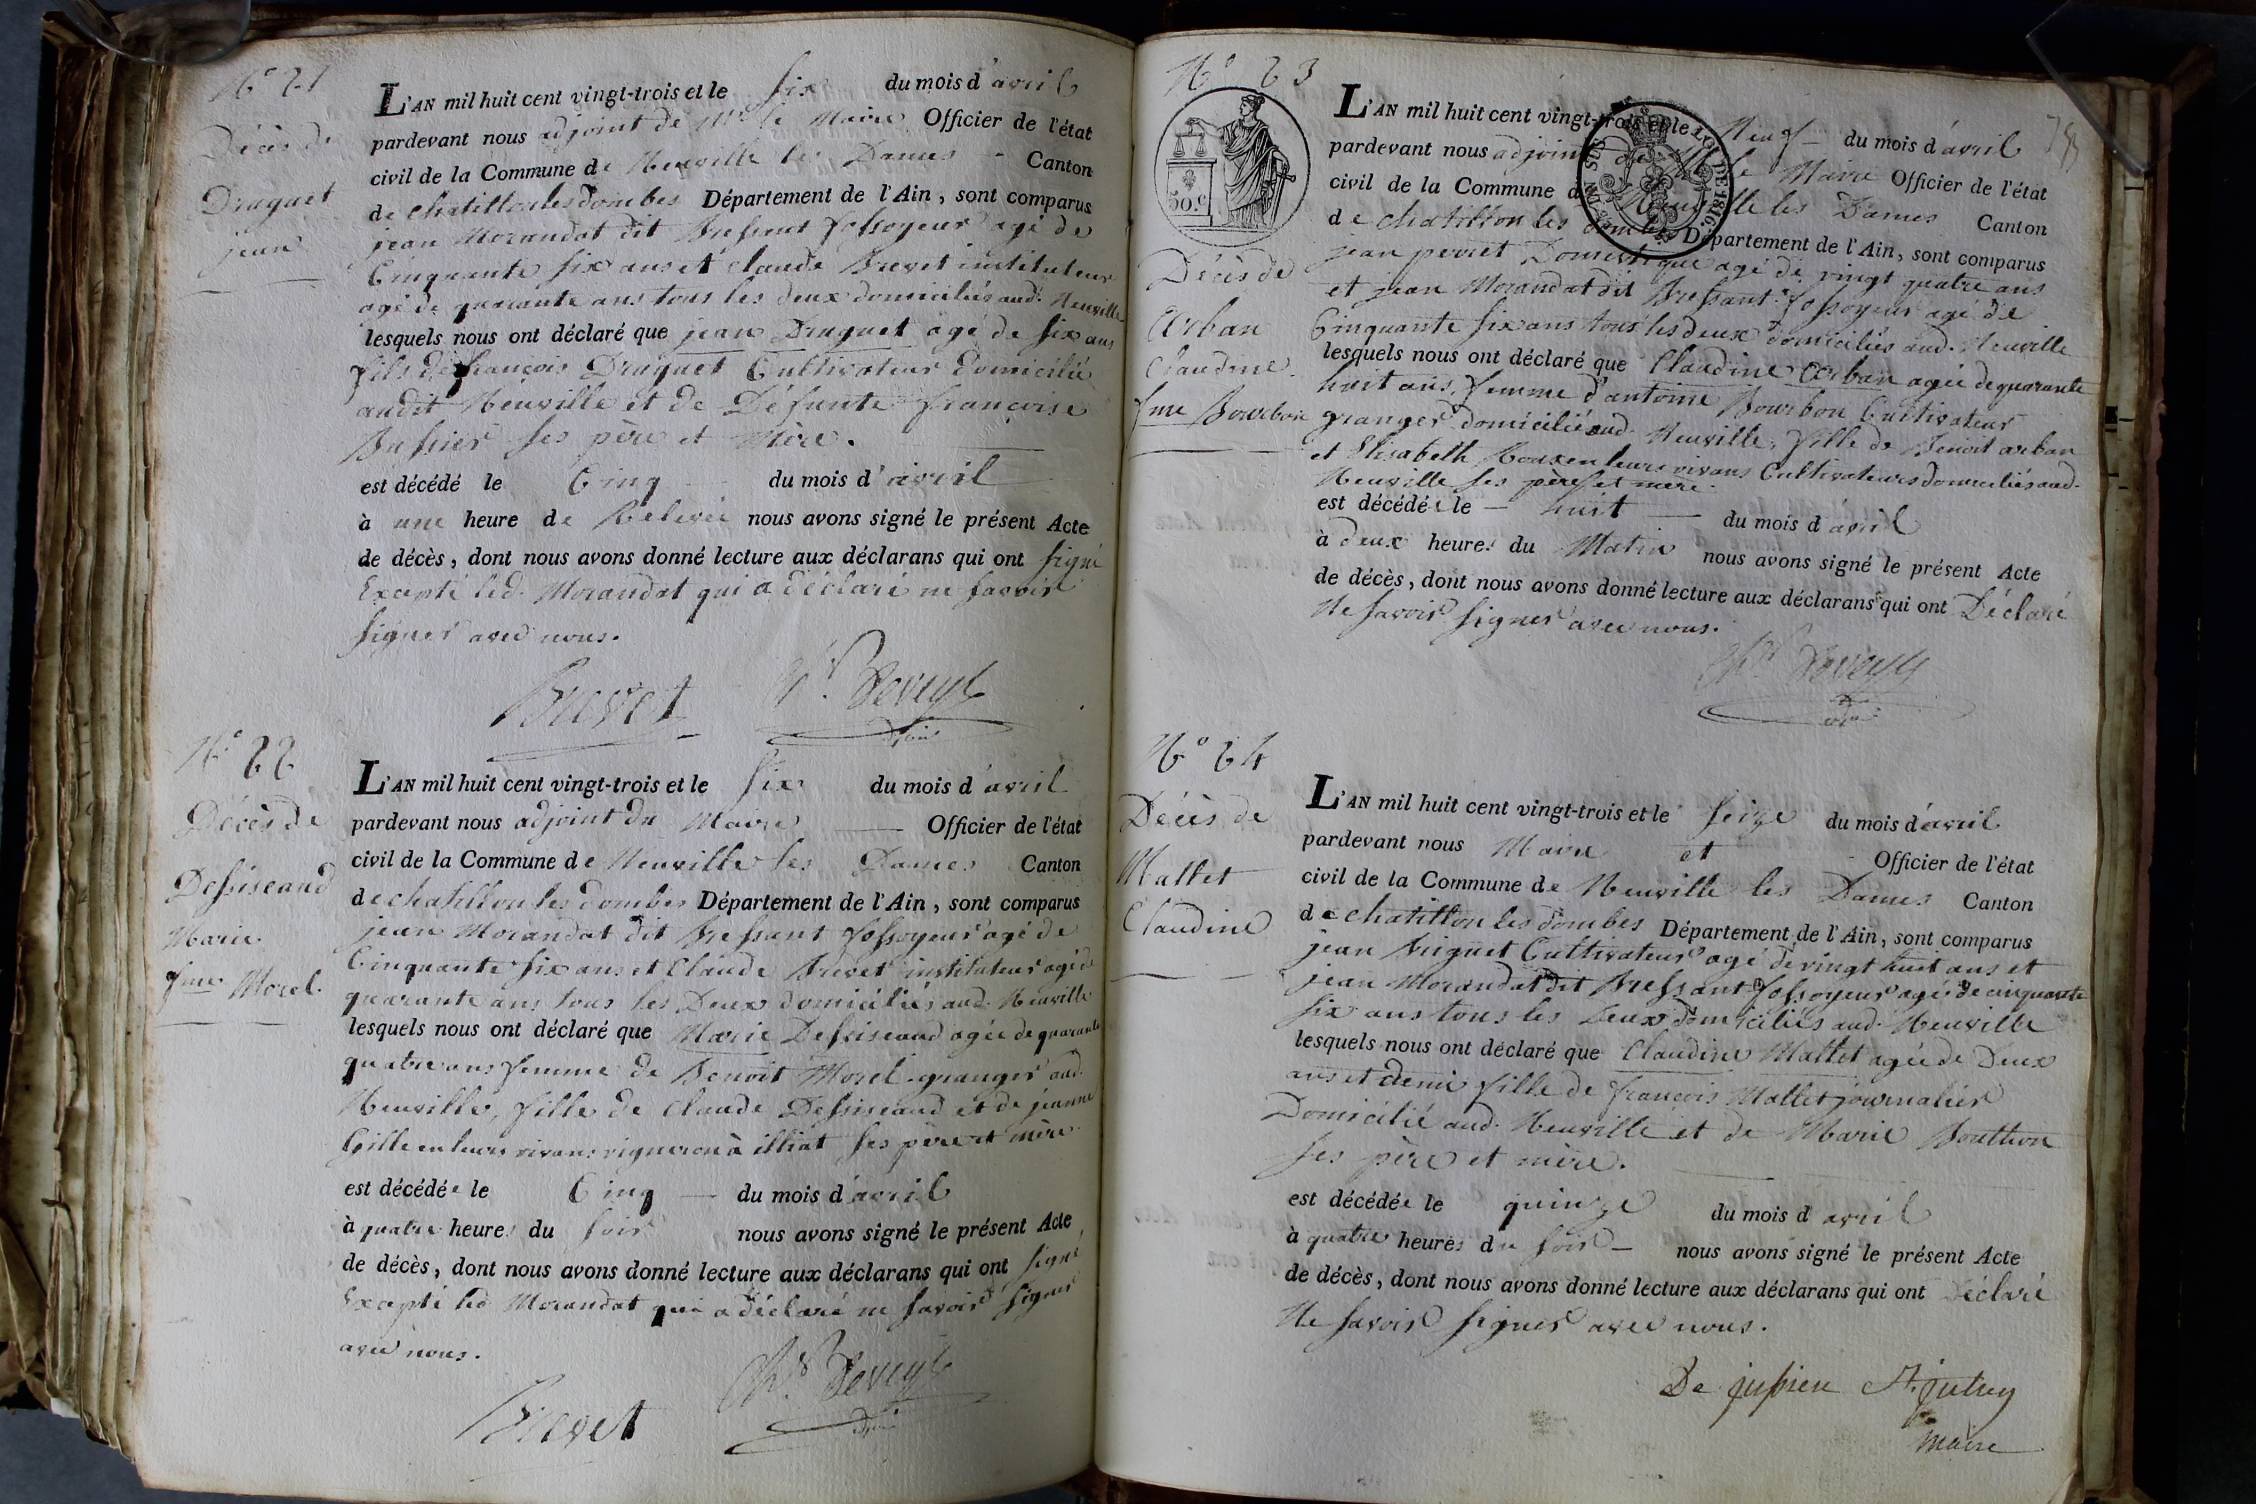 N.o 21
Décès de
Draguet
jean
L'AN mil huit cent vingt-trois et le six du mois d'avril
pardevant nous adjoint de Mr le Maire Officier de l'état
civil de la Commune de Neuville les Dames Canton
de chatillon les dombes Département de l'Ain, sont comparus
jean Morandat dit Bressant fossoyeur agé de
Cinquante six ans et Claude Brevet instituteur
agé de quarante ans tous les deux domiciliés aud. Neuville
lesquels nous ont déclaré que jean Draguet agé de six ans
fils de françois Draguet Cultivateur domicilié
audit Neuville et de Défunte françoise
ses père et Mère.
est décédé le Cinq du mois d'avril
à une heure de Relevée nous avons signé le présent Acte
de décès, dont nous avons donné lecture aux déclarans qui ont signé
Excepté led. Morandat qui a déclaré ne savoir
signer avec nous.
Brevet
N.o 22
Décès de
Dessiseaud
Marie
fme Morel.
L'AN mil huit cent vingt-trois et le six du mois d'avril
pardevant nous adjoint du Maire Officier de l'état
civil de la Commune de Neuville les Dames Canton
de chatillon les dombes Département de l'Ain, sont comparus
jean Morandat dit Bressant fossoyeur agé de
Cinquante six ans et Claude Brevet instituteur agé de
quarante ans tous les Deux domiciliés aud. Neuville
lesquels nous ont déclaré que Marie Dessiseaud agée de quarante
quatre ans femme de Benoit Morel granger aud.
Neuville, fille de Claude Dessiseaud et de jeanne
Gille en leurs vivans vigneron à illiat ses père et mère
est décédée le Cinq du mois d'avril
à quatre heures du soir nous avons signé le présent Acte
de décès, dont nous avons donné lecture aux déclarans qui ont signé
Excepté led Morandat qui a déclaré ne savoir signer
avec nous.
Brevet
N.o 23
50.c
LOI DE 1816.
Décès de
Arban
Claudine
fme Bourbon
L'AN mil huit cent vingt-trois et le Neuf du mois d'avril
pardevant nous adjoint de M. le Maire Officier de l'état
civil de la Commune de Neuville les Dames Canton
de chatillon les dombes Département de l'Ain, sont comparus
jean perret Domestique agé de vingt quatre ans
et jean Morandat dit Bressant fossoyeur agé de
Cinquante six ans tous les deux domiciliés aud. Neuville
lesquels nous ont déclaré que Claudine Arban agée de quarante
huit ans, femme d'antoine Bourbon Cultivateur
granger domicilié aud. Neuville, fille de Benoit arban
et Elisabeth en leurs vivans Cultivateurs domiciliés aud.
Neuville ses père et mère.
est décédée le huit du mois d'avril
à deux heures du Matin nous avons signé le présent Acte
de décès, dont nous avons donné lecture aux déclarans qui ont Déclaré
Ne savoir signer avec nous.
N.o 24
Décès de
Mallet
Claudine
L'AN mil huit cent vingt-trois et le seize du mois d'avril
pardevant nous Maire et Officier de l'état
civil de la Commune de Neuville les Dames Canton
de chatillon les dombes Département de l'Ain, sont comparus
jean Cultivateur agé de vingt huit ans et
jean Morandat dit Bressant fossoyeur agé de cinquante
six ans tous les Deux domiciliés aud. Neuville
lesquels nous ont déclaré que Claudine Mallet agée de Deux
ans et demi fille de françois Mallet journalier
Domicilié aud. Neuville et de Marie Bouthon
ses père et mère.
est décédée le quinze du mois d'avril
à quatre heures du soir nous avons signé le présent Acte
de décès, dont nous avons donné lecture aux déclarans qui ont Déclaré
Ne savoir signer avec nous.
De jussieu
maire